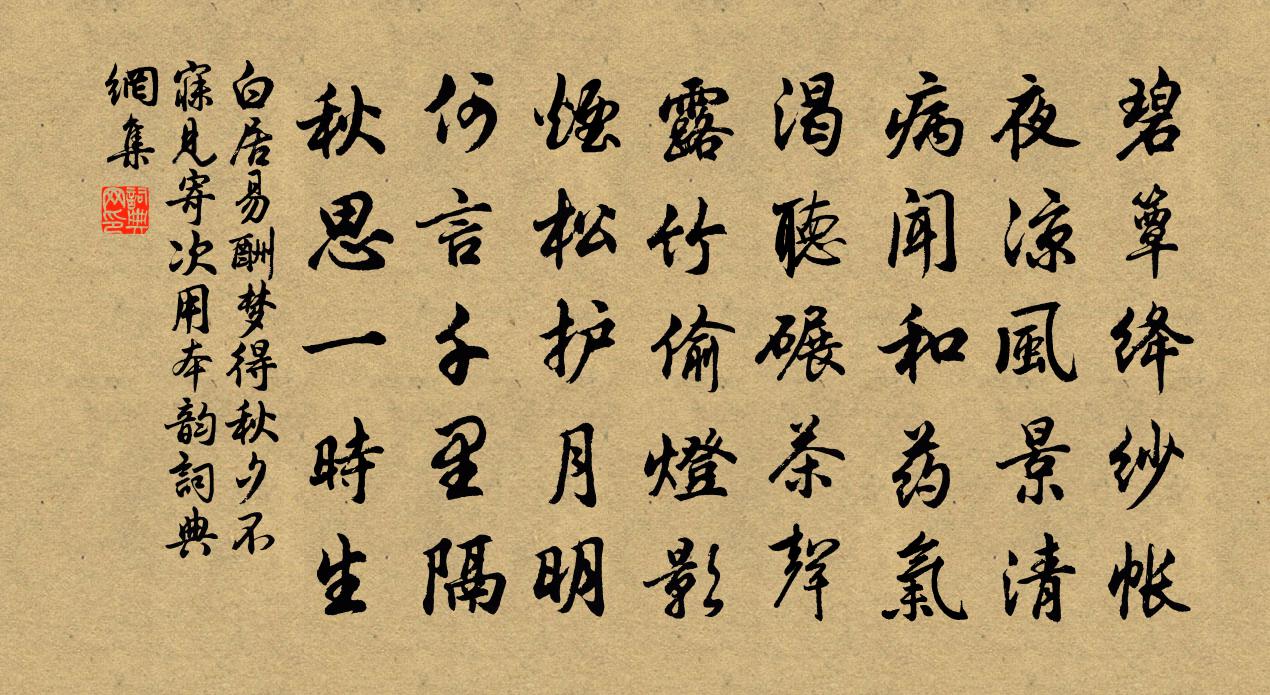 碧簟绛纱帐
夜凉風景清
病闻和药氣
渴聴碾茶聲
露竹偷燈影
煙松护月明
何言千里隔
秋思一時生
白居易酬梦得秋夕不
寐見寄次用本韵詞典
網集
詞典网印